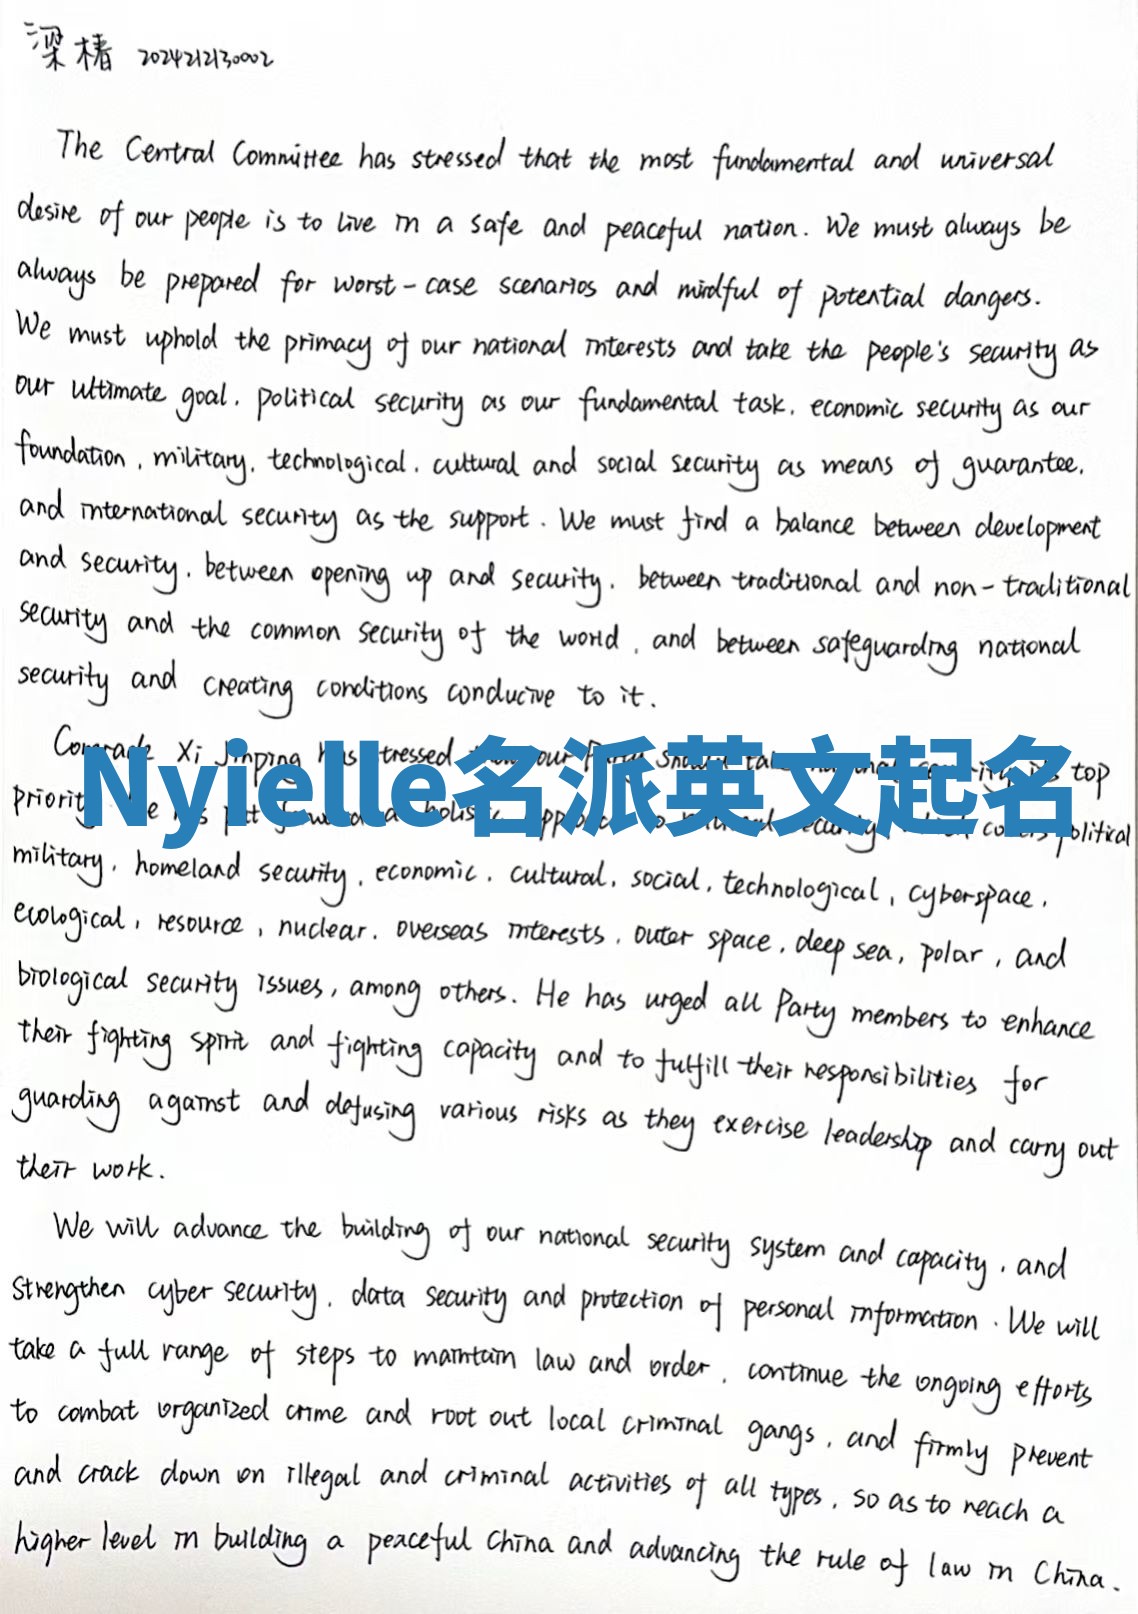 梁椿 2024212130002
The Central Committee has stressed that the most fundamental and universal
desire of our people is to live in a safe and peaceful nation. We must always be
always be prepared for worst-case scenarios and mindful of potential dangers.
We must uphold the primacy of our national interests and take the people's security as
our ultimate goal, political security as our fundamental task, economic security as our
foundation, military, technological, cultural and social security as means of guarantee,
and international security as the support. We must find a balance between development
and security, between opening up and security, between traditional and non-traditional
security and the common security of the world, and between safeguarding national
security and creating conditions conducive to it.
Comrade Xi Jinping has stressed our Party should top
Nyielle名派英文起名
political
military, homeland security, economic, cultural, social, technological, cyberspace,
ecological, resource, nuclear, overseas interests, outer space, deep sea, polar, and
biological security issues, among others. He has urged all Party members to enhance
their fighting spirit and fighting capacity and to fulfill their responsibilities for
guarding against and defusing various risks as they exercise leadership and carry out
their work.
We will advance the building of our national security system and capacity, and
strengthen cyber security, data security and protection of personal information. We will
take a full range of steps to maintain law and order, continue the ongoing efforts
to combat organized crime and root out local criminal gangs, and firmly prevent
and crack down on illegal and criminal activities of all types, so as to reach a
higher level in building a peaceful China and advancing the rule of law in China.